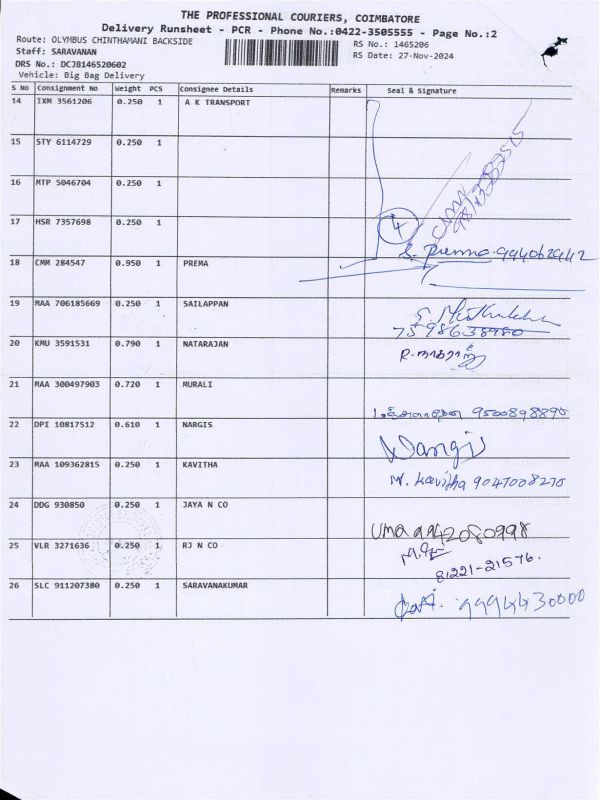 THE PROFESSIONAL COURIERS, COIMBATORE
Delivery Runsheet - PCR - Phone No.:0422-3505555 - Page No.:2
Route: OLYMBUS CHINTHAMANI BACKSIDE
RS No.: 1465206
Staff: SARAVANAN
RS Date: 27-Nov-2024
DRS No.: DCJB146520602
Vehicle: Big Bag Delivery
S No Consignment No Weight PCS Consignee Details Remarks Seal & Signature
14 IXM 3561206 0.250 1 A K TRANSPORT
15 STY 6114729 0.250 1
16 MTP 5046704 0.250 1
17 HSR 7357698 0.250 1
4
S. Prema 994062942
18 CMM 284547 0.950 1 PREMA
19 MAA 706185669 0.250 1 SAILAPPAN
7598638980
20 KMU 3591531 0.790 1 NATARAJAN
21 MAA 300497903 0.720 1 MURALI
9500898890
22 DPI 10817512 0.610 1 NARGIS
Nargis
23 MAA 109362815 0.250 1 KAVITHA
M. Kavitha 9047008270
24 DDG 930850 0.250 1 JAYA N CO
Uma 9942080998
25 VLR 3271636 0.250 1 RJ N CO
81221-21576.
26 SLC 911207380 0.250 1 SARAVANAKUMAR
9994430000